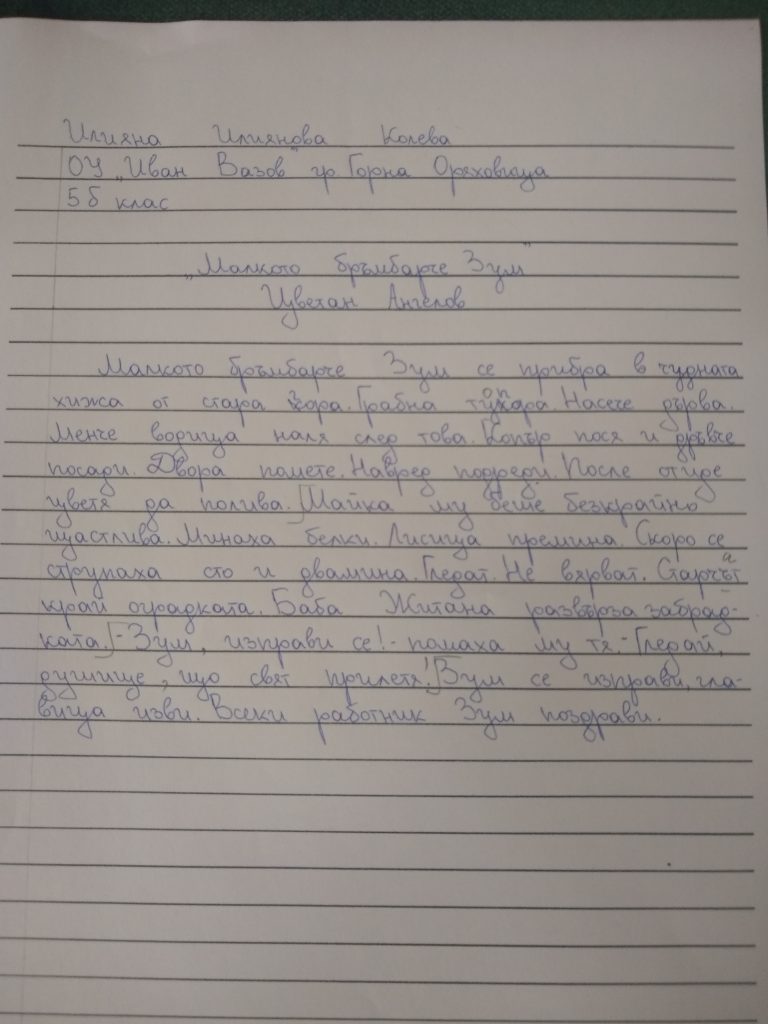 Илияна Илиянова Колева
ОУ „Иван Вазов" гр. Горна Оряховица
5 б клас
„Малкото бръмбарче Зум"
Цветан Ангелов
Малкото бръмбарче Зум се прибра в чудната
хижа от стара кора. Грабна топора. Насече дърва.
Менче водица наля след това. Копър пося и дръвче
посади. Двора помете. Навред подреди. После отиде
цветя да полива. Майка му беше безкрайно
щастлива. Минаха белки. Лисица премина. Скоро се
струпаха сто и двамина. Гледат. Не вярват. Старчат
край оградката. Баба Житана развърза забрад-
ката. - Зум, изправи се! - помаха му тя. - Гледай,
душице, що свят прилетя! Зум се изправи, гла-
вица изви. Всеки работник Зум поздрави.